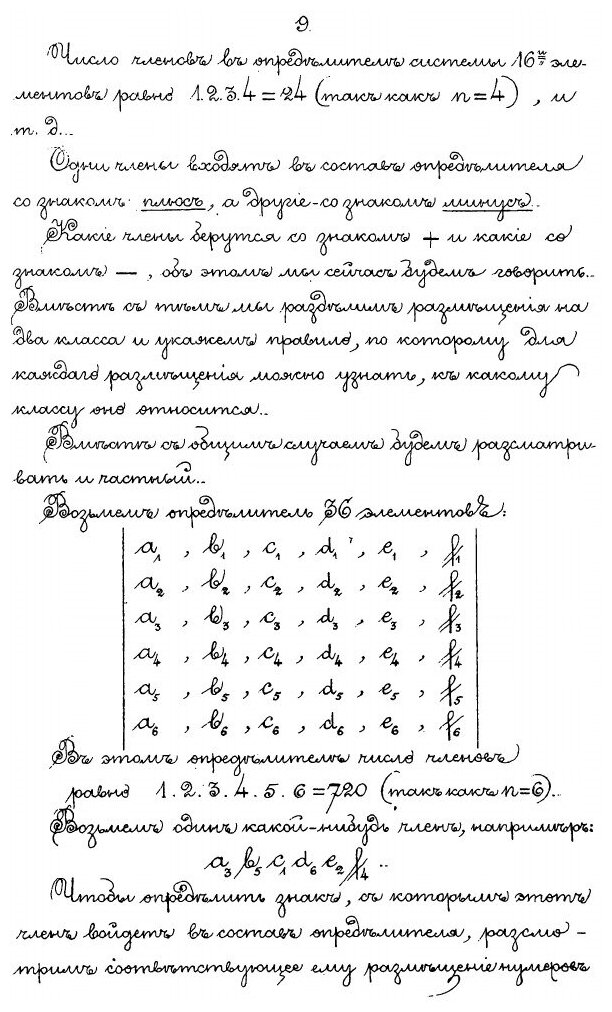 9.
Число членовъ въ опредѣлителѣ системы 16ⁱⁱ эле-
ментовъ равно 1.2.3.4=24 (такъ какъ n=4), и
т. д...
Одни члены входятъ въ составъ опредѣлителя
со знакомъ плюсъ, а другіе-со знакомъ минусъ..
Какіе члены берутся со знакомъ + и какіе со
знакомъ —, объ этомъ мы сейчасъ будемъ говорить..
Вмѣстѣ съ тѣмъ мы раздѣлимъ размѣщенія на
два класса и укажемъ правило, по которому для
каждаго размѣщенія можно узнать, къ какому
классу оно относится..
Вмѣстѣ съ общимъ случаемъ будемъ разсматри-
вать и частный..
Возьмемъ опредѣлитель 36 элементовъ:
a₁ , b₁ , c₁ , d₁ , e₁ , f₁
a₂ , b₂ , c₂ , d₂ , e₂ , f₂
a₃ , b₃ , c₃ , d₃ , e₃ , f₃
a₄ , b₄ , c₄ , d₄ , e₄ , f₄
a₅ , b₅ , c₅ , d₅ , e₅ , f₅
a₆ , b₆ , c₆ , d₆ , e₆ , f₆
Въ этомъ опредѣлителѣ число членовъ
равно 1.2.3.4.5.6=720 (такъ какъ n=6)..
Возьмемъ одинъ какой-нибудь членъ, напримѣръ:
a₃ b₅ c₁ d₆ e₂ f₄ ..
Чтобы опредѣлить знакъ, съ которымъ этотъ
членъ войдетъ въ составъ опредѣлителя, разсмо-
тримъ соотвѣтствующее ему размѣщеніе нумеровъ